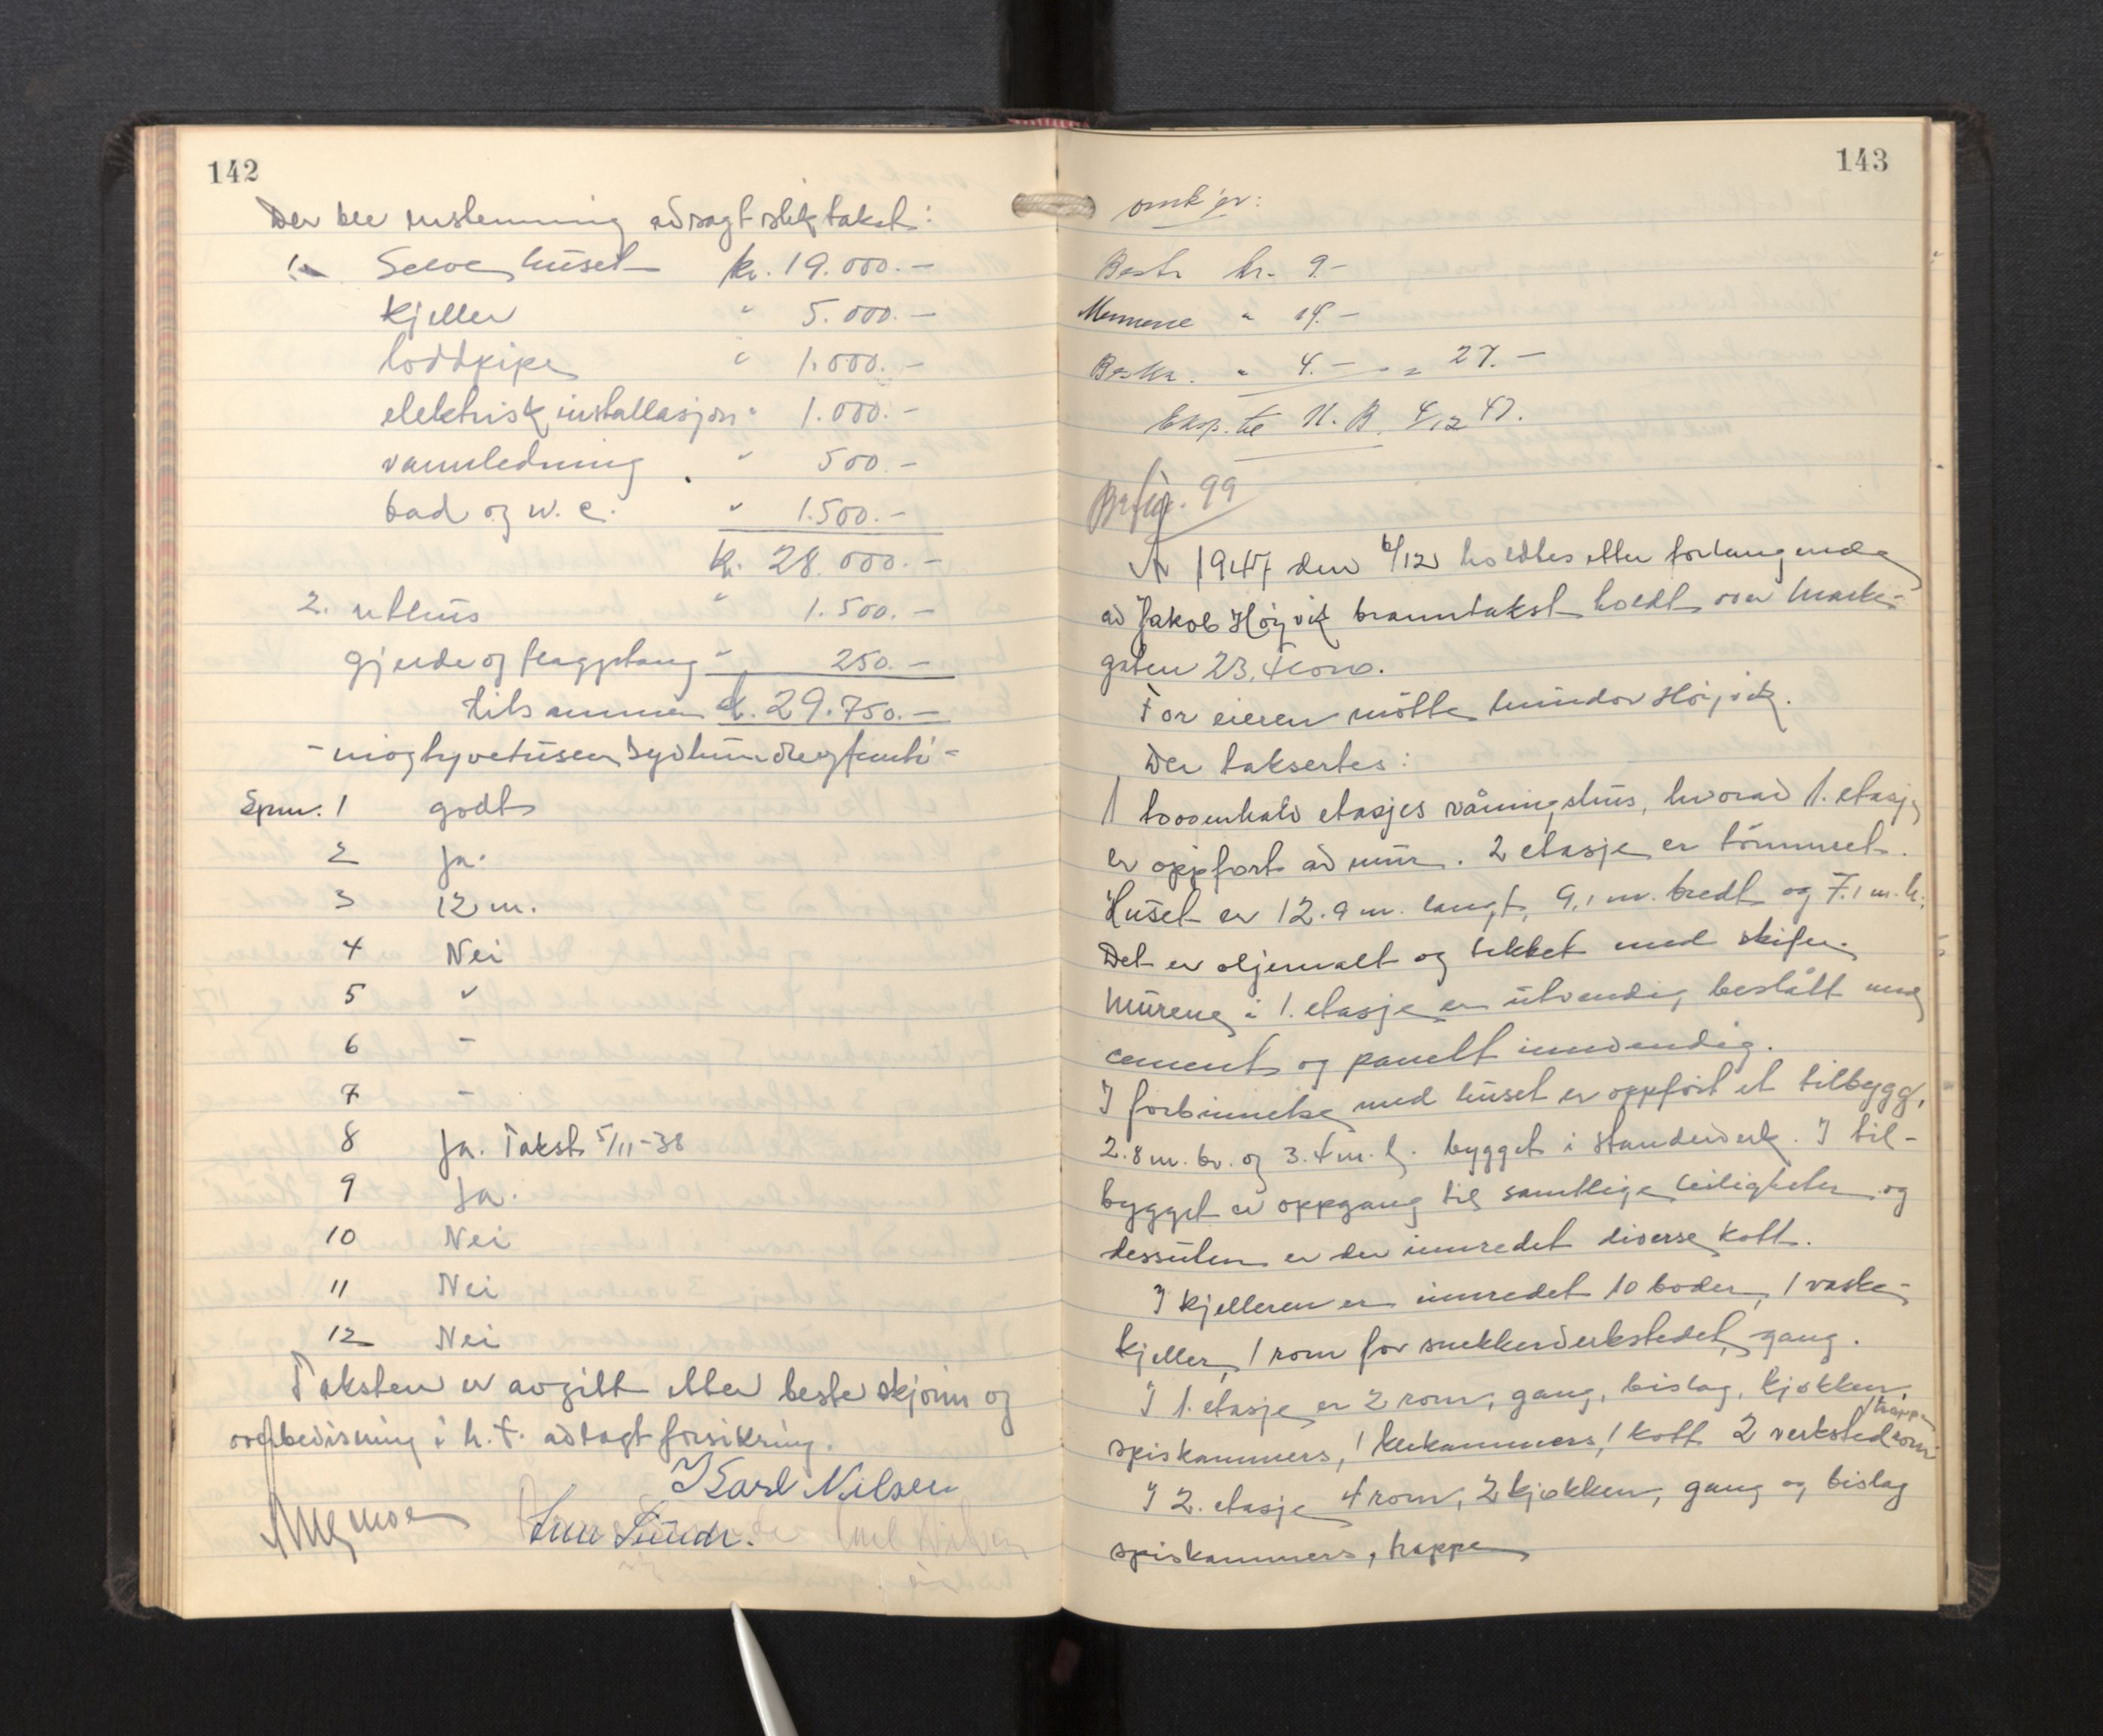 142
Der ble enstemmig avsagt slik takst:
1. Selve huset kr. 19.000.-
kjeller " 5.000.-
loddpipe " 1.000.-
elektrisk installasjon " 1.000.-
vannledning " 500.-
bad og w.c. " 1.500.-
kr. 28.000.-
2. uthus " 1.500.-
gjerde og flaggstang " 250.-
tilsammen kr. 29.750.-
- niogtyvetusen syvhundreogfemti -
Spm. 1 godt
2 Ja.
3 12 m.
4 Nei
5 "
6 -
7 -
8 Ja. Takst 5/11-38
9 Ja.
10 Nei
11 Nei
12 Nei
Taksten er avgitt etter beste skjønn og
overbevisning i h.t. avlagt forsikring.
Karl Nilsen
143
omk er:
Best kr. 9.-
Mennene "
Beskr. " 4.- " = 27.-
Eksp. til N.B. 4/12 47.
Br. for. 99
År 1947 den 6/12 holdtes etter forlangende
av Jakob Høyvik branntakst holdt over Marke-
gaten 23, Florø.
For eieren møtte Høyvik.
Der taksertes:
1 tooenhalv etasjes våningshus, hvorav 1. etasje
er oppført av mur. 2 etasje er tømmret.
Huset er 12.9 m. langt, 9,1 m. bredt og 7.1 m. h.
Det er oljemalt og tekket med skifer.
Murene i 1. etasje er utvendig beslått med
cement og panelt innvendig.
I forbinnelse med huset er oppført et tilbygg,
2.8 m. br. og 3.4 m. l. bygget i standerverk. I til-
bygget er oppgang til samtlige leiligheter og
dessuten er der innredet diverse kott.
I kjelleren er innredet 10 boder, 1 vaske-
kjeller, 1 rom for snekkerverkstedet, gang.
I 1. etasje er 2 rom, gang, bislag, kjøkken,
spiskammers, 1 klekammers, 1 kott 2 verkstedrom
1 trapp
I 2. etasje 4 rom, 2 kjøkken, gang og bislag
spiskammers, trappe